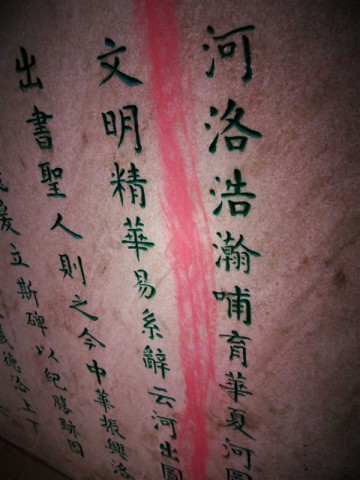 河洛浩瀚哺育華夏河圖
文明精華易系辭云河出圖
出書聖人則之今中華振興洛
爰立斯碑以紀勝跡曰
德洽上下